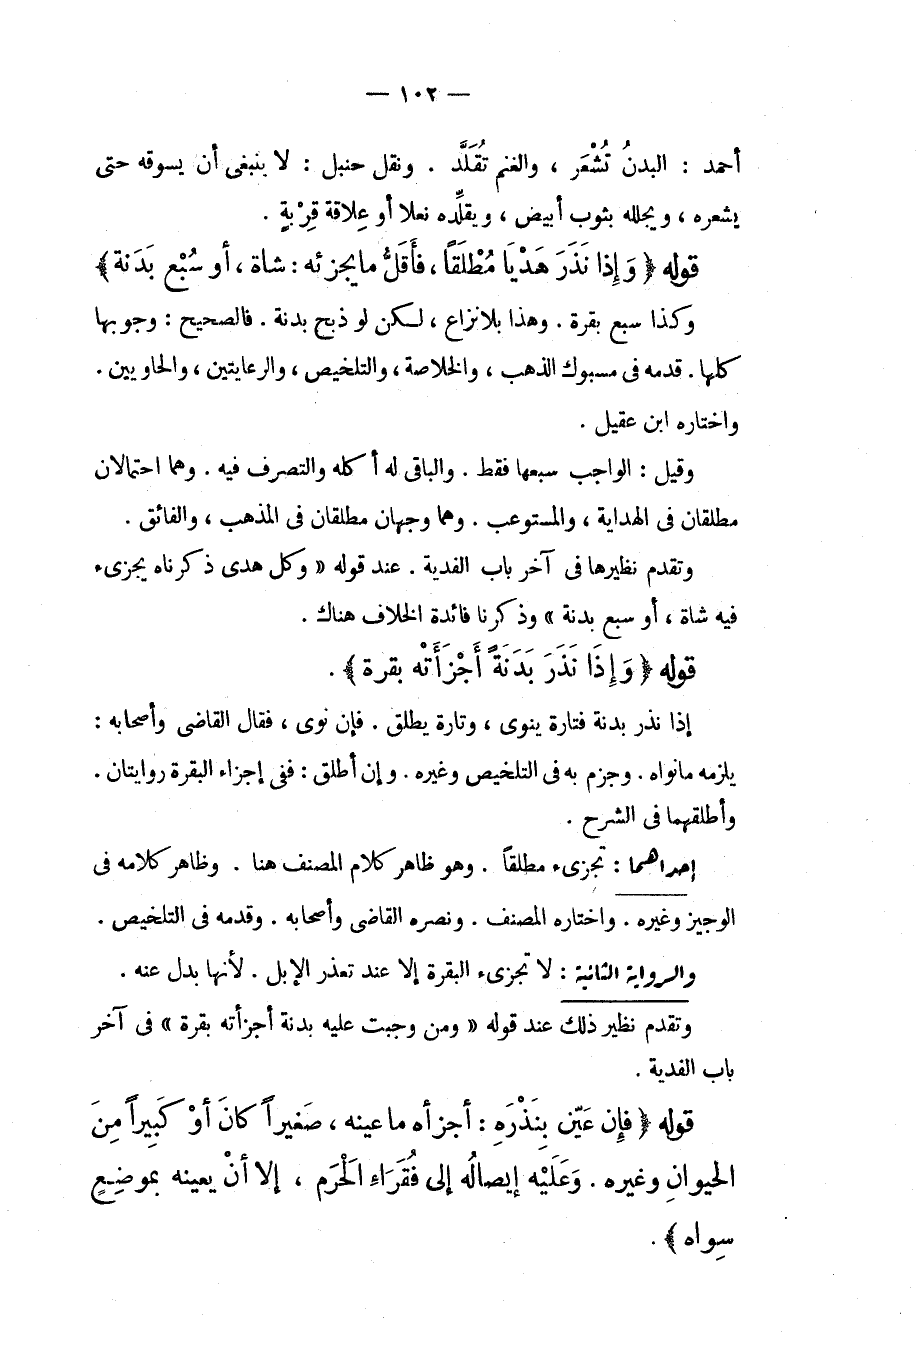 — ١٠٢ —
أحمد : البدنُ تُشْعَر ، والغنم تُقَلَّد . ونقل حنبل : لا ينبغى أن يسوقه حتى
يشعره ، ويجلله بثوب أبيض ، ويقلِّده نعلا أو عِلاقة قِرْبةٍ .
قوله ﴿ وَإِذا نَذَرَ هَدْيَا مُطْلَقاً ، فَأَقَلُّ مايجزئه : شاة ، أو سُبْع بَدَنة ﴾
وكذا سبع بقرة . وهذا بلانزاع ، لكن لو ذبح بدنة . فالصحيح : وجوبها
كلها . قدمه فى مسبوك الذهب ، والخلاصة ، والتلخيص ، والرعايتين ، والحاويين .
واختاره ابن عقيل .
وقيل : الواجب سبعها فقط . والباقى له أكله والتصرف فيه . وهما احتمالان
مطلقان فى الهداية ، والمستوعب . وهما وجهان مطلقان فى المذهب ، والفائق .
وتقدم نظيرها فى آخر باب الفدية . عند قوله « وكل هدى ذكرناه يجزىء
فيه شاة ، أو سبع بدنة » وذكرنا فائدة الخلاف هناك .
قوله ﴿ وَإِذَا نَذَرَ بَدَنَةً أَجْزَأَتْه بقرة ﴾ .
إذا نذر بدنة فتارة ينوى ، وتارة يطلق . فإن نوى ، فقال القاضى وأصحابه :
يلزمه مانواه . وجزم به فى التلخيص وغيره . وإن أطلق : ففى إجزاء البقرة روايتان .
وأطلقهما فى الشرح .
إحداهما : تجزىء مطلقاً . وهو ظاهر كلام المصنف هنا . وظاهر كلامه فى
الوجيز وغيره . واختاره المصنف . ونصره القاضى وأصحابه . وقدمه فى التلخيص .
والرواية الثانية : لا تجزىء البقرة إلا عند تعذر الإبل . لأنها بدل عنه .
وتقدم نظير ذلك عند قوله « ومن وجبت عليه بدنة أجزأته بقرة » فى آخر
باب الفدية .
قوله ﴿ فإن عَيّن بِنَذْرَهِ : أجزأه ما عينه ، صَغيراً كانَ أوْ كَبِيراً مِنَ
الحيوانِ وغيره . وَعَلَيْه إيصالُه إلى فُقَرَاء الْحَرَم ، إلا أنْ يعينه بموضِعٍ
سِواه ﴾ .